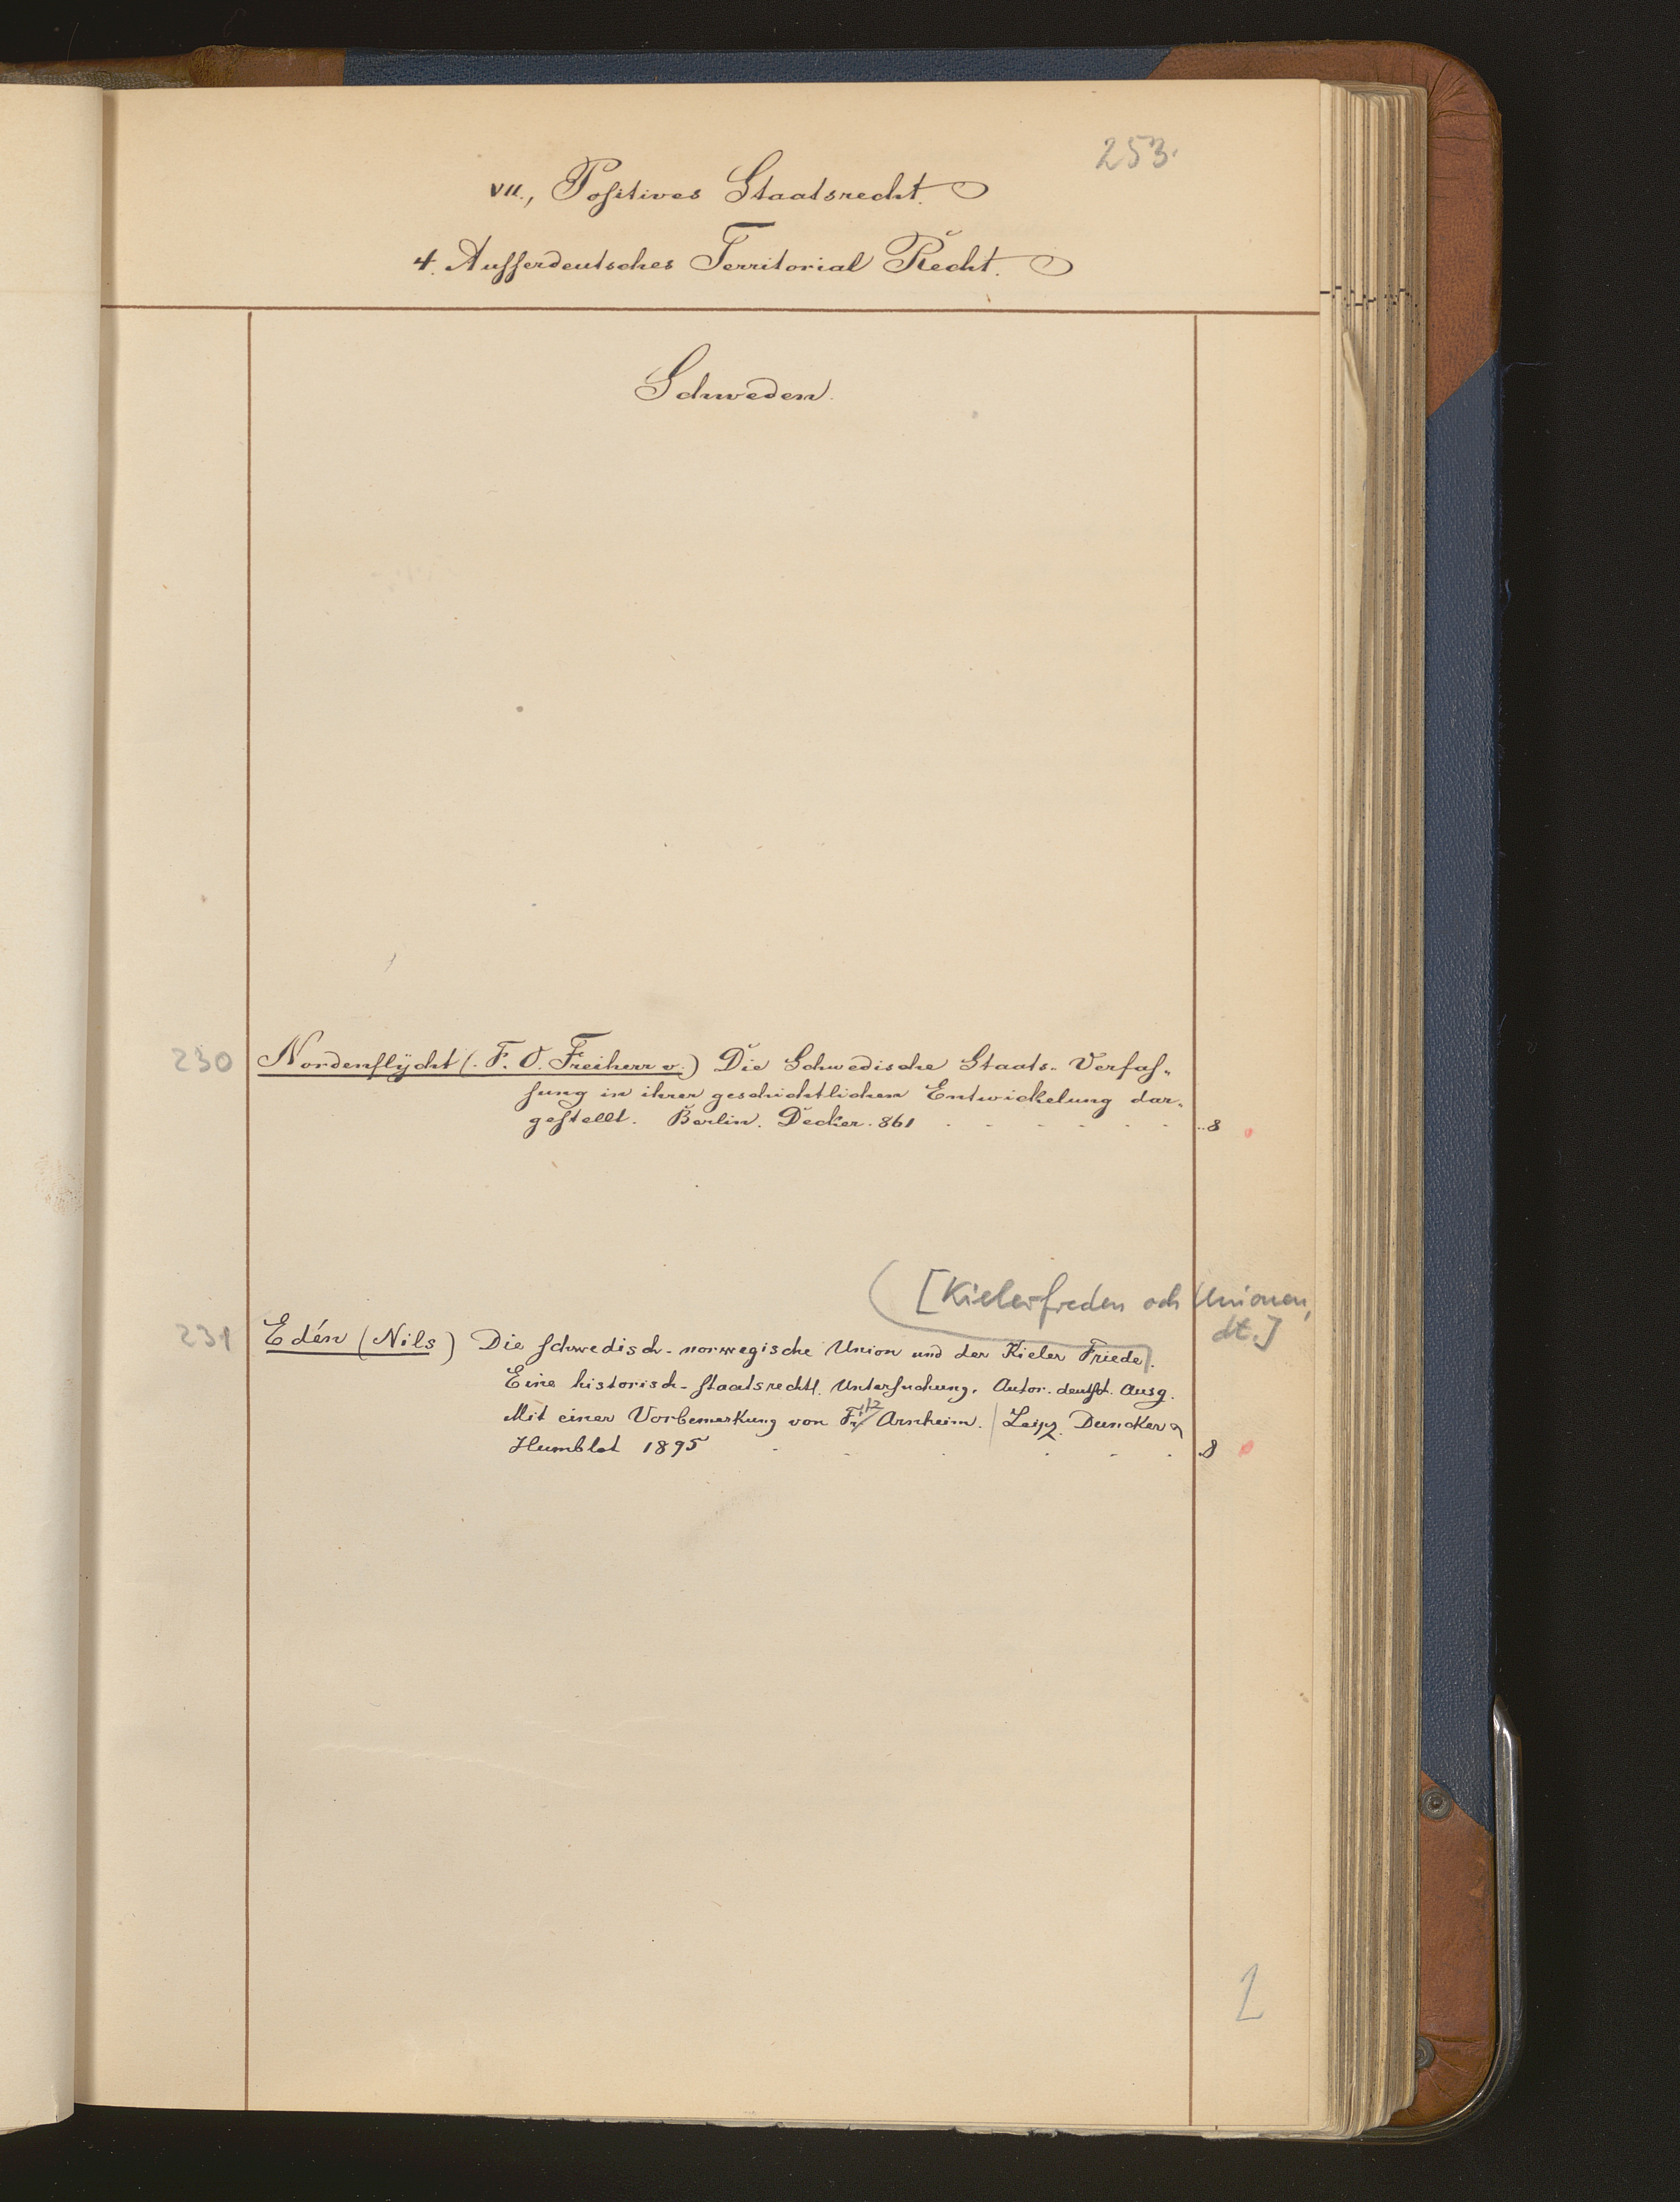 253.
VII., Positives Staatsrecht.
4. Ausserdeutsches Territorial Recht.
Schweden.
230 Nordenflÿcht (. F. O. Freiherr v.) Die Schwedische Staats-Verfas-
sung in ihrer geschichtlichen Entwickelung dar-
gestellt. Berlin. Decker. 861 . . . . . . 8
[Kielerfreden och Unionen,
dt.]
231 Edén (Nils) Die schwedisch-norwegische Union und der Kieler Friede.
Eine historisch-staatsrechtl. Untersuchung. Autor. deutsch. Ausg.
Mit einer Vorbemerkung von Fritz Arnheim. | Leipz. Duncker &
Humblot 1895 . . . . . . 8
2